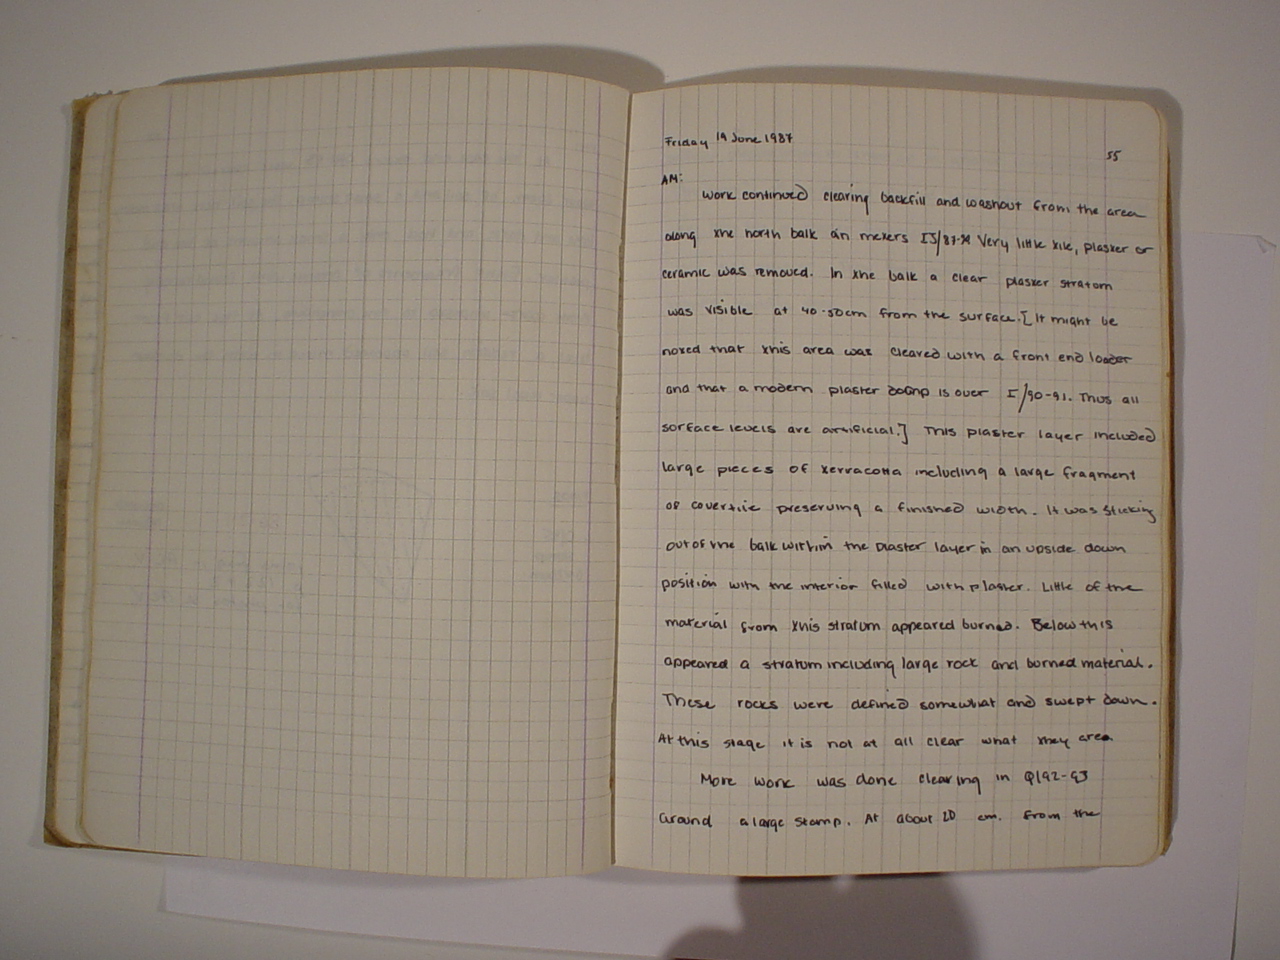 Friday 19 June 1987
55
AM:
Work continued clearing backfill and washout from the area
along the north balk in meters Very little tile, plaster or
ceramic was removed. In the balk a clear plaster stratum
was visible at 40-50cm from the surface. [It might be
noted that this area was cleared with a front end loader
and that a modern plaster dump is over I/90-91. Thus all
surface levels are artificial.] This plaster layer included
large pieces of terracotta including a large fragment
of covertile preserving a finished width. It was sticking
out of the balk within the plaster layer in an upside down
position with the interior filled with plaster. Little of the
material from this stratum appeared burned. Below this
appeared a stratum including large rock and burned material.
These rocks were defined somewhat and swept down.
At this stage it is not at all clear what they are.
More work was done clearing in Q/92-93
around a large stump. At about 20 cm. from the